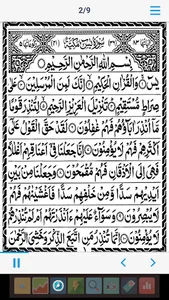 2/9
سورة يس مكية
بسم الله الرحمن الرحيم
يس ۝ والقران الحكيم ۝ انك لمن المرسلين ۝ على
صراط مستقيم ۝ تنزيل العزيز الرحيم ۝ لتنذر قوما
ما انذر اباؤهم فهم غفلون ۝ لقد حق القول على
اكثرهم فهم لا يؤمنون ۝ انا جعلنا في اعناقهم اغللا
فهي الى الاذقان فهم مقمحون ۝ وجعلنا من بين
ايديهم سدا ومن خلفهم سدا فاغشينهم فهم
لا يبصرون ۝ وسواء عليهم ءانذرتهم ام لم تنذرهم
لا يؤمنون ۝ انما تنذر من اتبع الذكر وخشي الرحمن